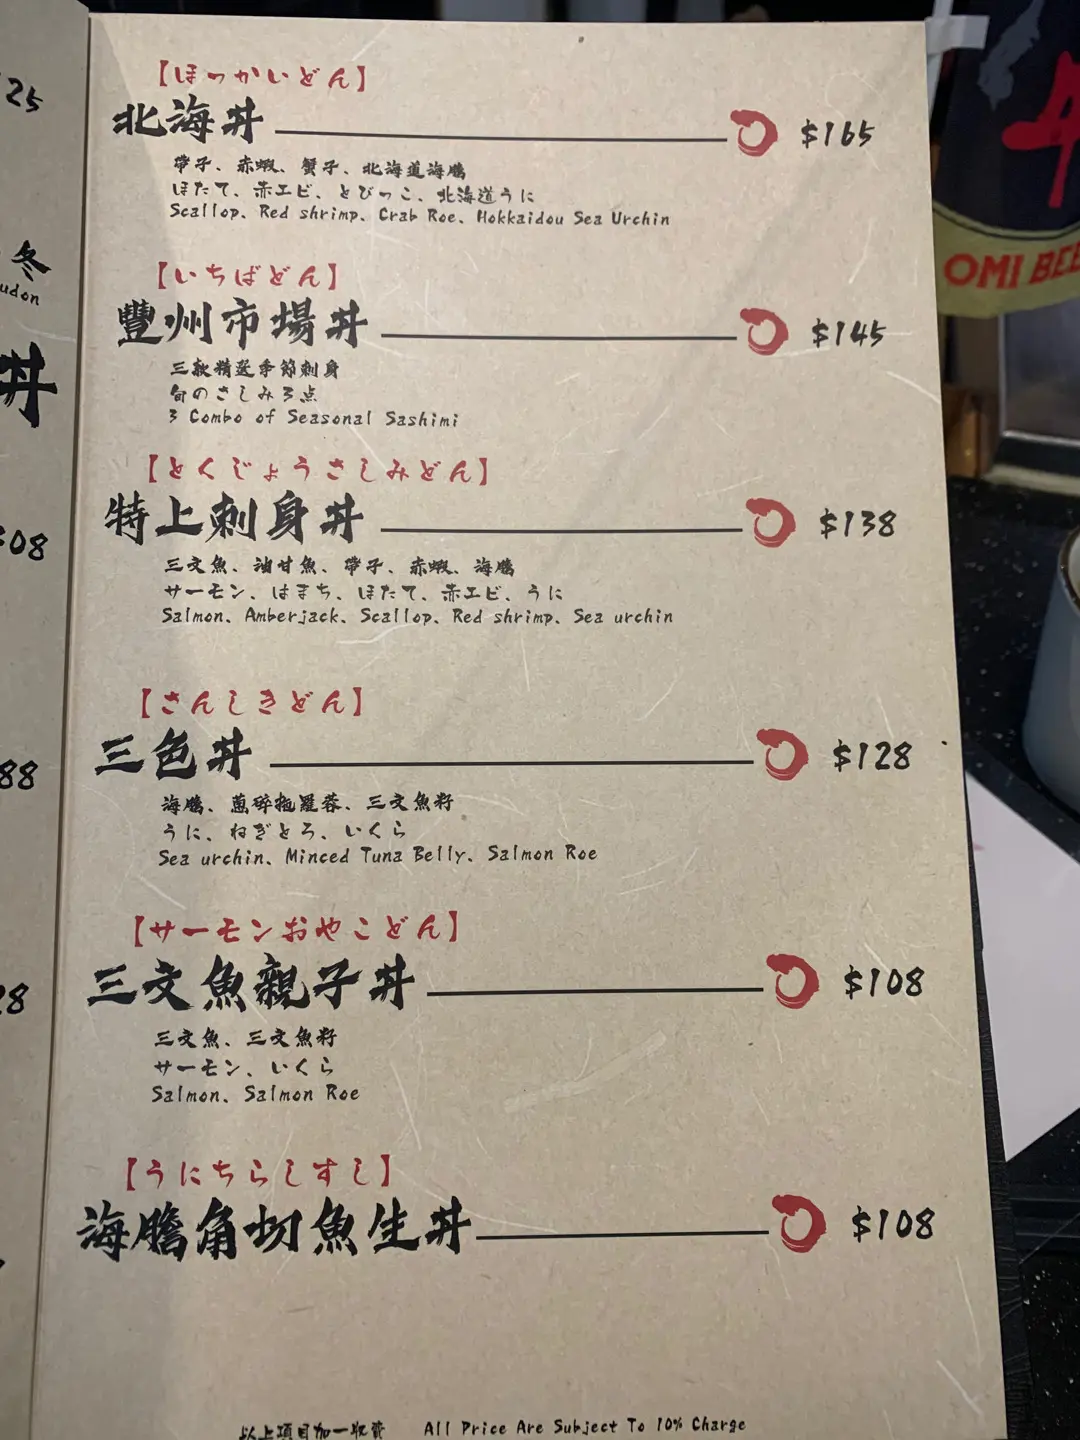 【ほっかいどん】
北海丼 $165
帶子、赤蝦、蟹子、北海道海膽
ほたて、赤エビ、とびっこ、北海道うに
Scallop、Red shrimp、Crab Roe、Hokkaidou Sea Urchin
【いちばどん】
豐州市場丼 $145
三款精選季節刺身
旬のさしみ3点
3 Combo of Seasonal Sashimi
【とくじょうさしみどん】
特上刺身丼 $138
三文魚、油甘魚、帶子、赤蝦、海膽
サーモン、はまち、ほたて、赤エビ、うに
Salmon、Amberjack、Scallop、Red shrimp、Sea urchin
【さんしきどん】
三色丼 $128
海膽、蔥碎拖羅蓉、三文魚籽
うに、ねぎとろ、いくら
Sea urchin、Minced Tuna Belly、Salmon Roe
【サーモンおやこどん】
三文魚親子丼 $108
三文魚、三文魚籽
サーモン、いくら
Salmon、Salmon Roe
【うにちらしすし】
海膽角切魚生丼 $108
以上項目加一收費 All Price Are Subject To 10% Charge
25
冬
udon
丼
08
88
28
OMI BEE